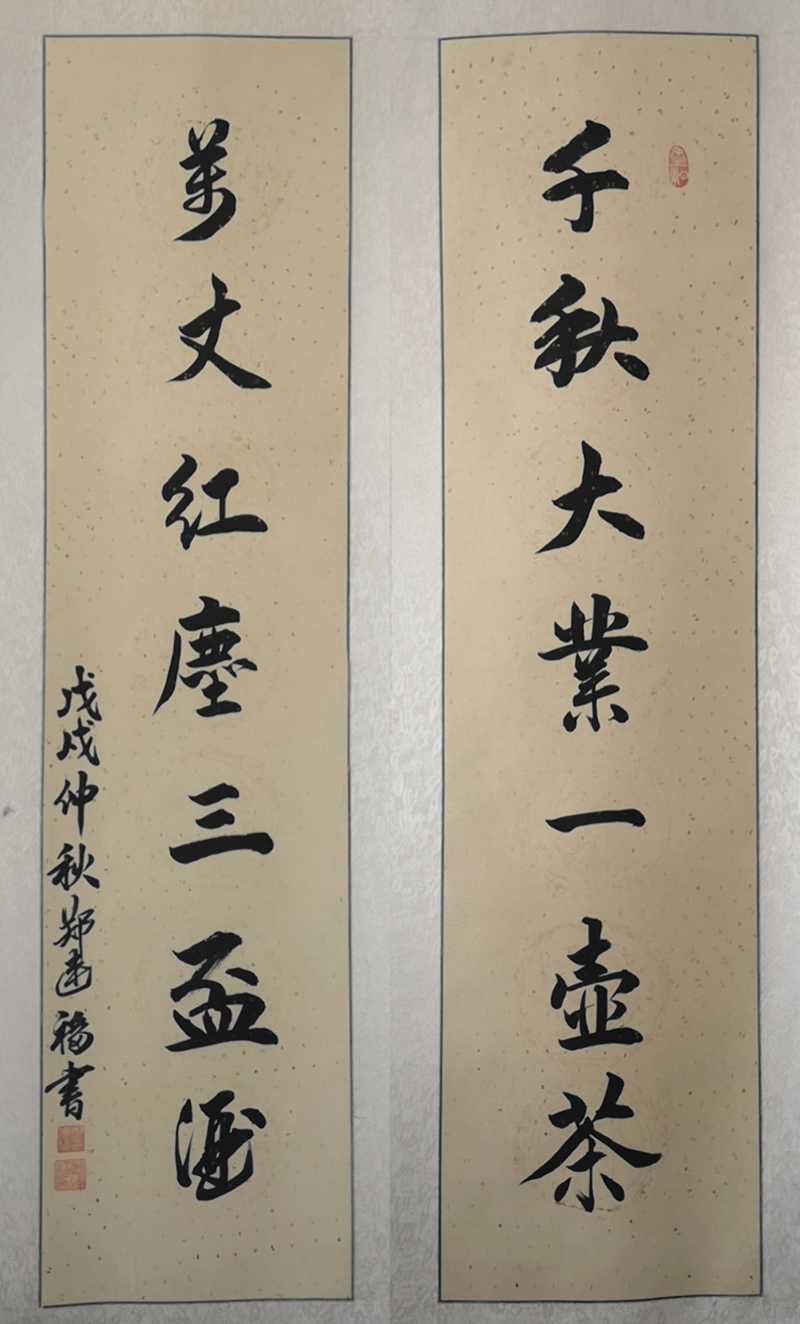 千秋大業一壺茶
萬丈紅塵三盃酒
戊戌仲秋郑建福書